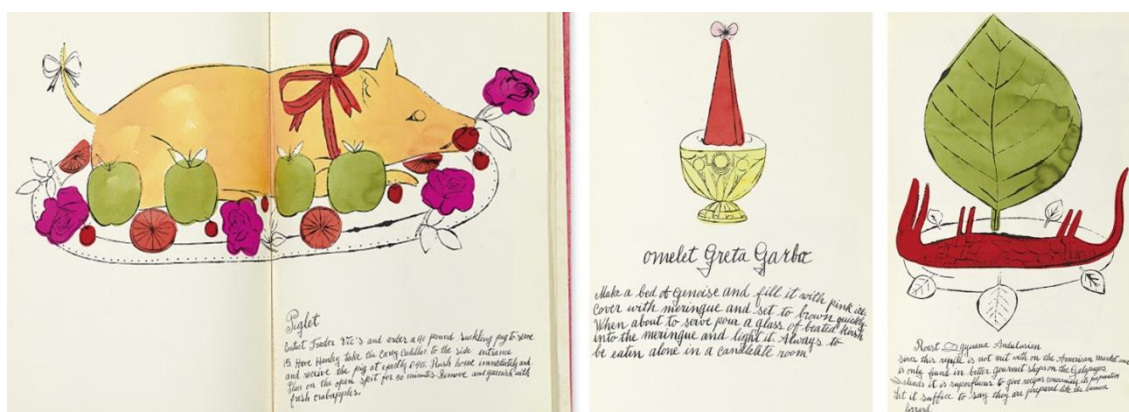 Piglet
Contact Trader Vic's and order a 40 pound suckling pig to serve
15. Have Hanley take the Carey Cadillac to the side entrance
and receive the pig at exactly 6:45. Rush home immediately and
place on the open spit for 50 minutes. Remove and garnish with
fresh crabapples.
omelet Greta Garbo
Make a bed of Genoise and fill it with pink ice
Cover with meringue and set to brown quickly.
When about to serve pour a glass of heated Kirsh
into the meringue and light it. Always to
be eaten alone in a candlelit room
Roast Iguana Andalusian
since this reptile is not met with on the American market and
is only found in better gourmet shops on the Galapagos
Islands it is superfluous to give recipes concerning its preparation
let it suffice to say they are prepared like the